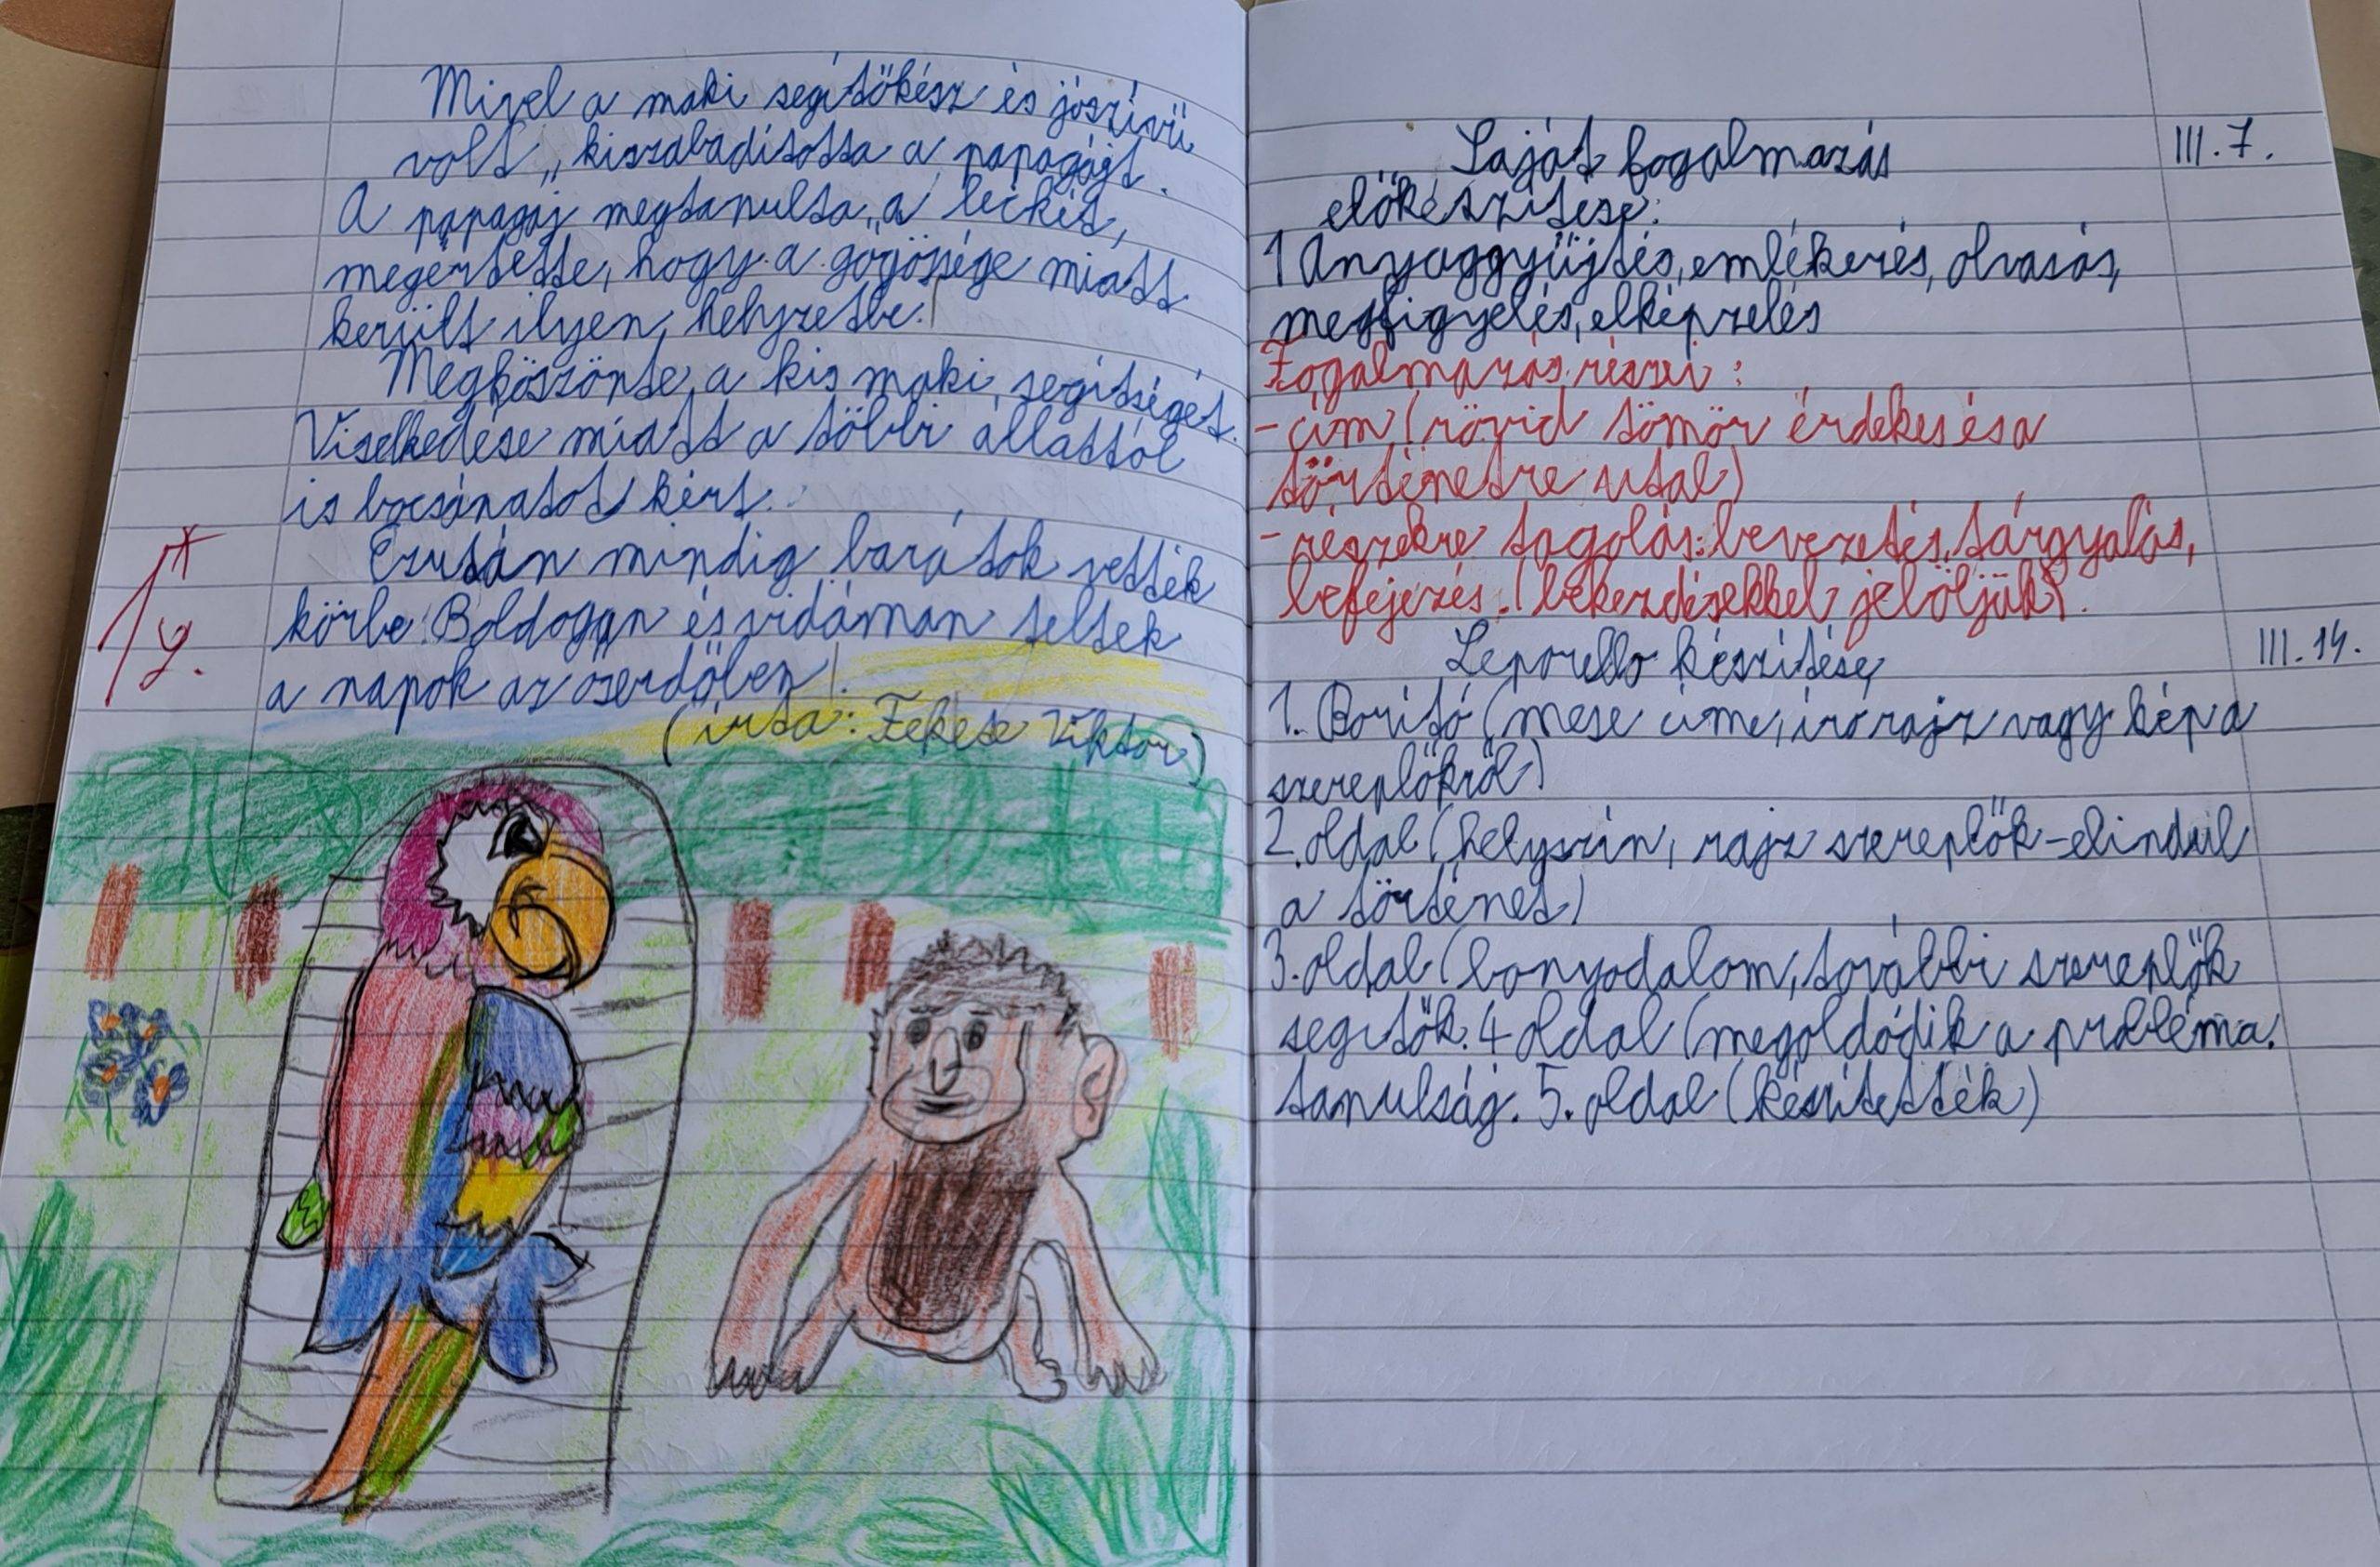 Mivel a maki segítőkész és jószívű
volt, kiszabadította a papagájt.
A papagáj megtanulta a leckét,
megértette, hogy a gőgössége miatt
került ilyen helyzetbe.
Megköszönte a kis maki segítségét.
Viselkedése miatt a többi állattól
is bocsánatot kért.
Ezután mindig barátok vették
körbe. Boldogan és vidáman teltek
a napok az őserdőben!
(írta: Fekete Viktor)
Saját fogalmazás III.7.
előkészítése:
1 Anyaggyűjtés, emlékezés, olvasás,
megfigyelés, elképzelés
Fogalmazás részei:
- cím (rövid tömör érdekes és a
történetre utal)
- részekre tagolás: bevezetés, tárgyalás,
befejezés. (bekezdésekkel jelöljük).
Leporello készítése III.14.
1. Borító (mese címe, író rajz vagy kép a
szereplőkről)
2. oldal (helyszín, rajz szereplők-elindul
a történet)
3. oldal (bonyodalom, további szereplők
segítők. 4 oldal (megoldódik a probléma.
tanulság. 5. oldal (készítették)